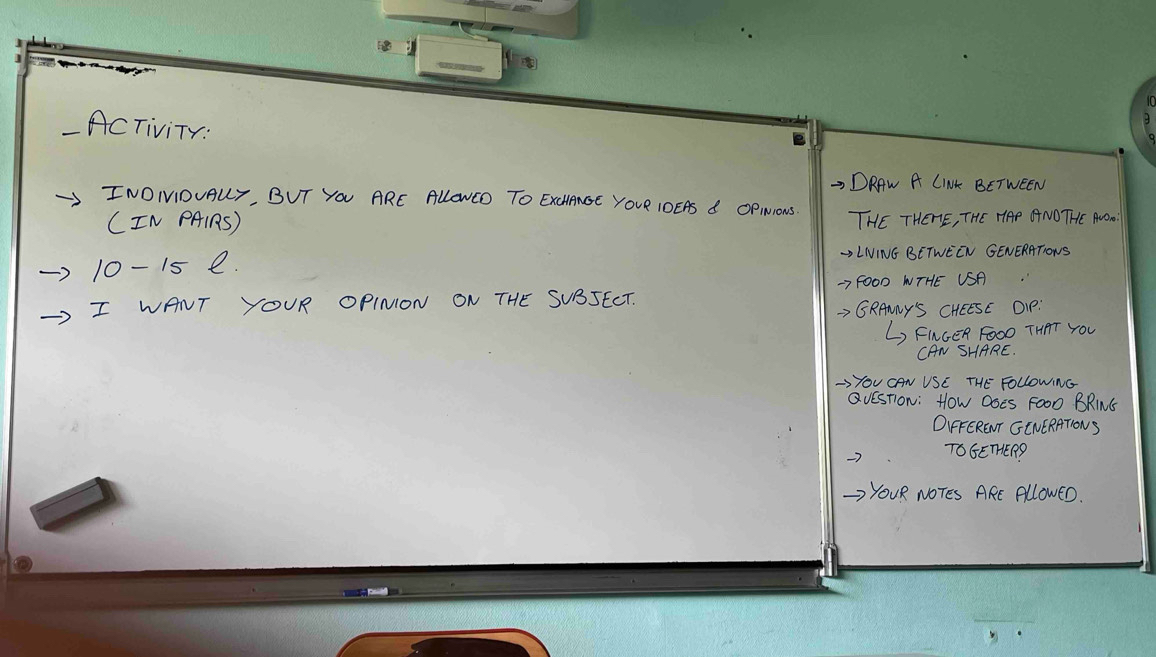 - ACTIVITY:
→ INDIVIDUALLY, BUT YOU ARE ALLOWED TO EXCHANGE YOUR IDEAS & OPINIONS.
(IN PAIRS)
→ 10 - 15 l.
→ I WANT YOUR OPINION ON THE SUBJECT.
→ DRAW A LINK BETWEEN
THE THEME, THE MAP AND THE AUDIO:
→ LIVING BETWEEN GENERATIONS
→ FOOD IN THE USA
→ GRANNY'S CHEESE DIP:
↳ FINGER FOOD THAT YOU
CAN SHARE.
→ YOU CAN USE THE FOLLOWING
QUESTION: HOW DOES FOOD BRING
DIFFERENT GENERATIONS
→ TOGETHER?
→ YOUR NOTES ARE ALLOWED.
10
9
8